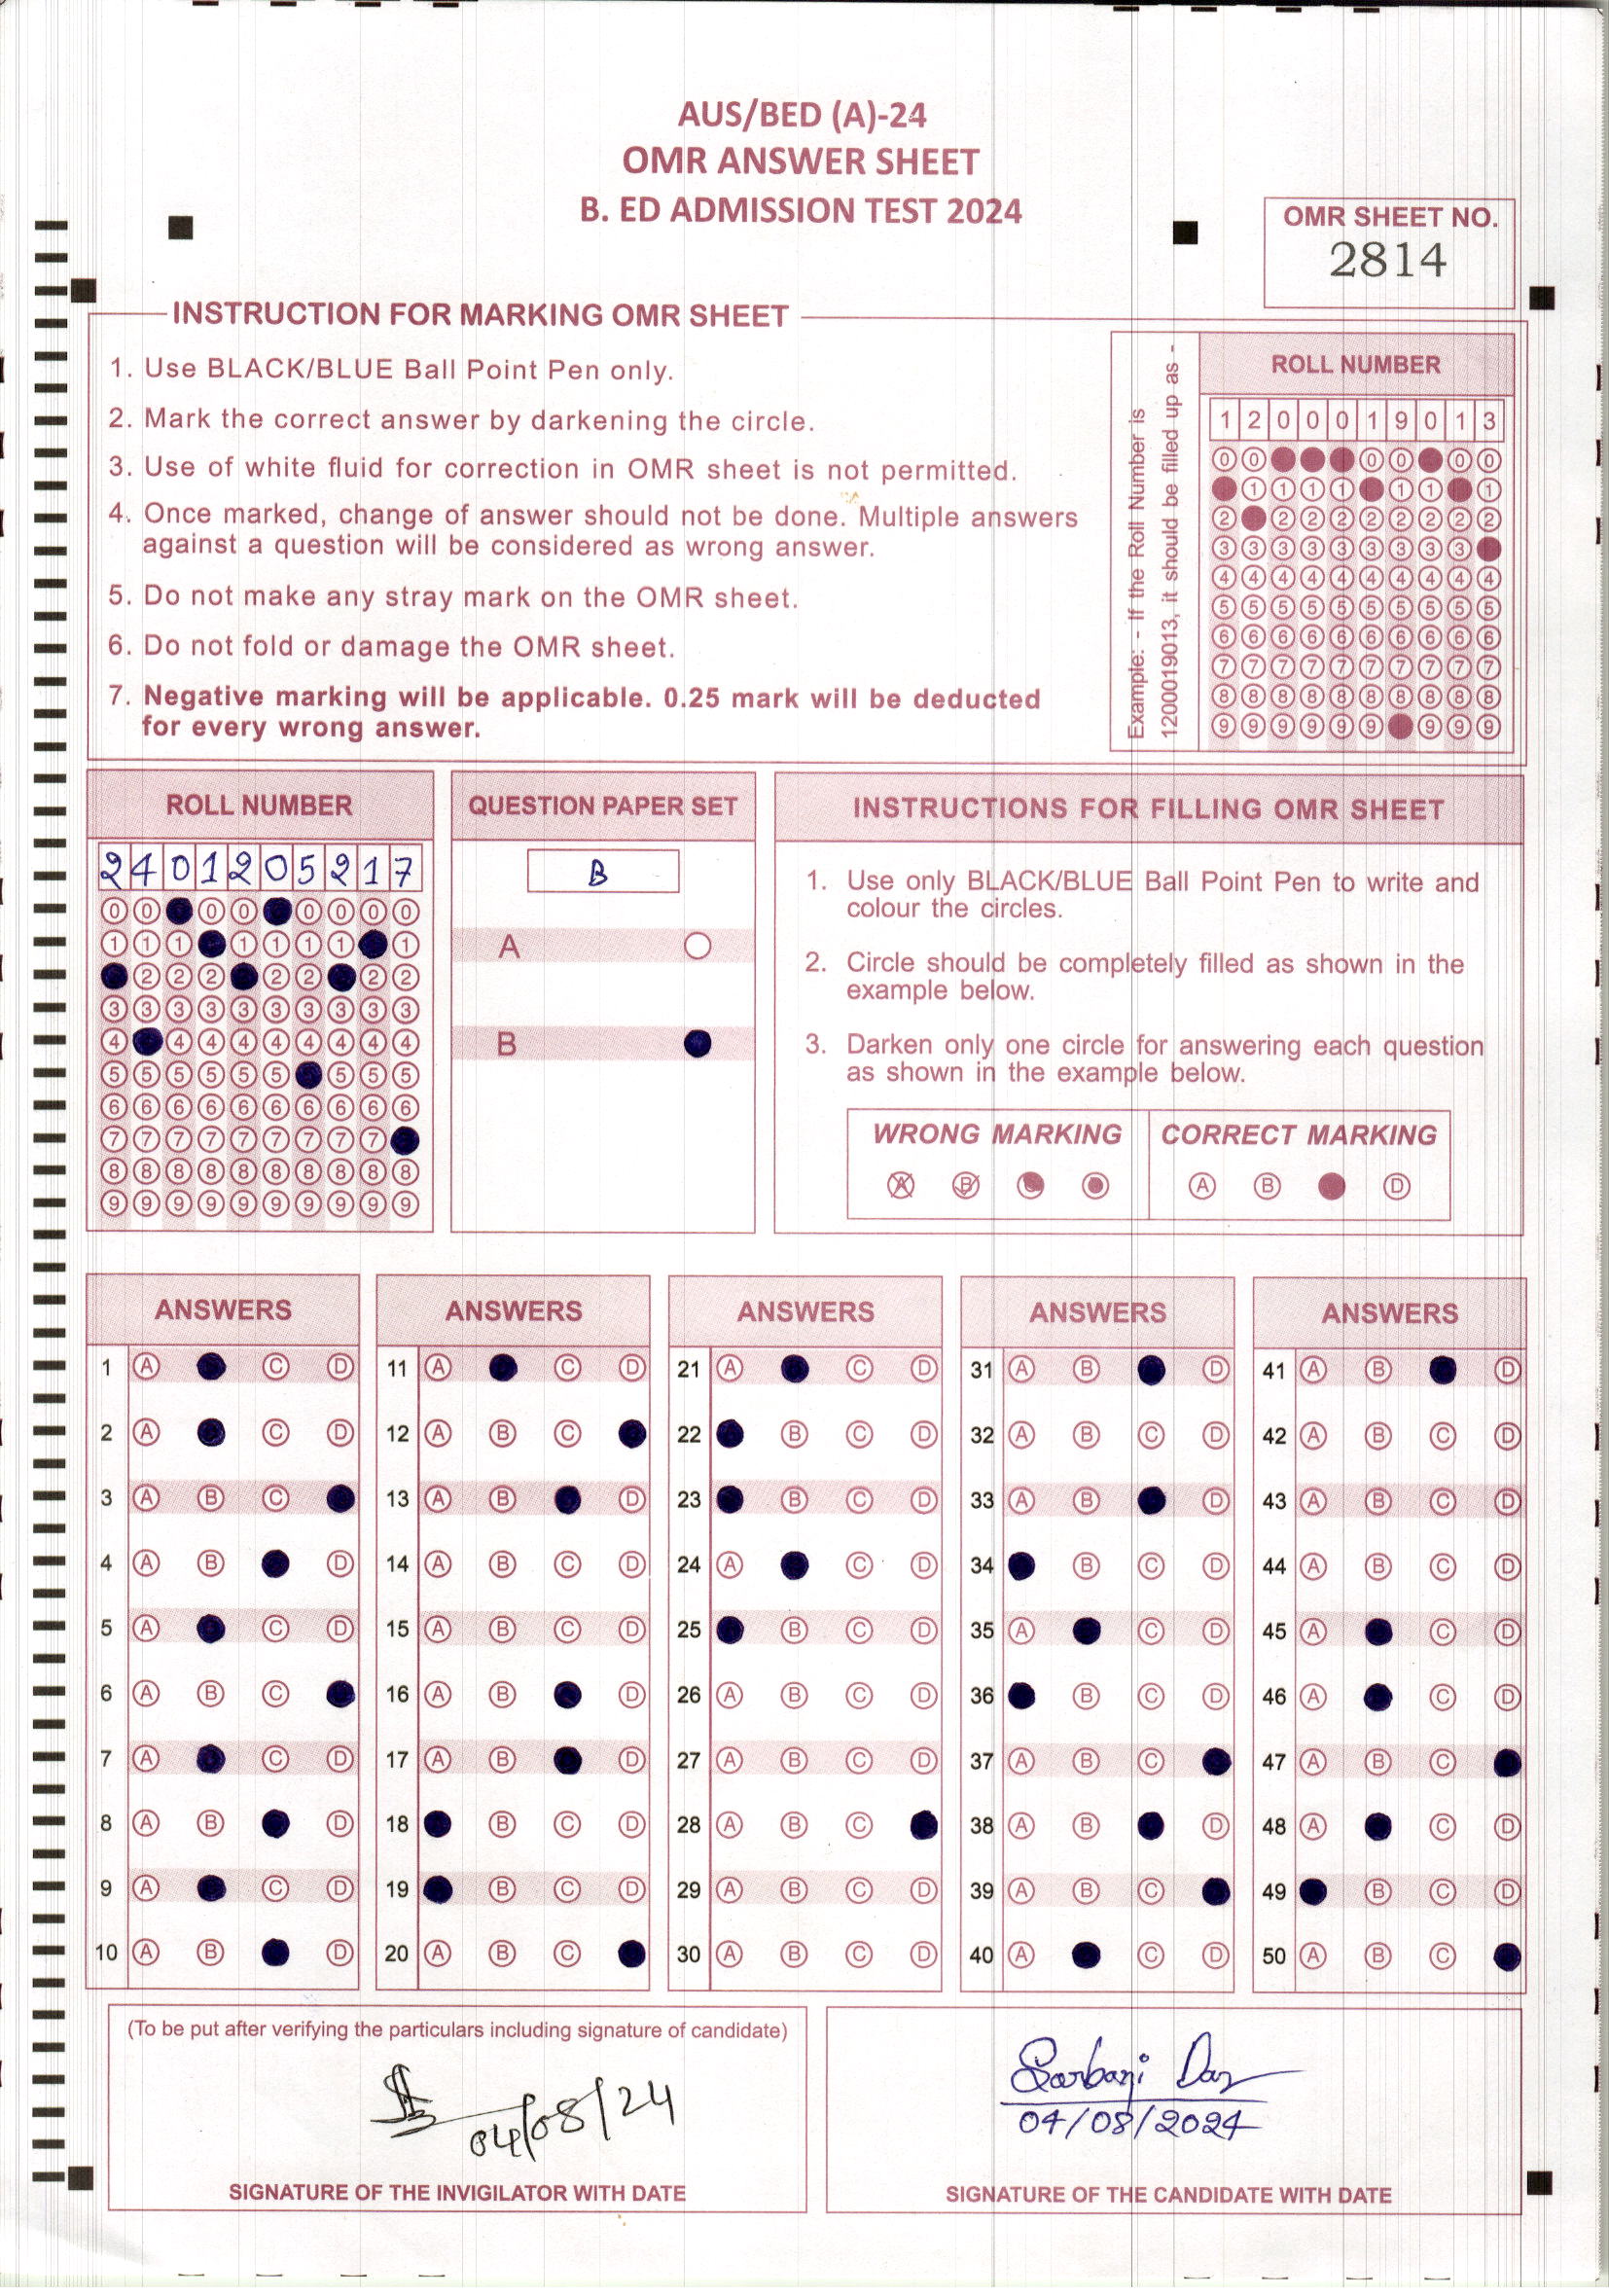 AUS/BED (A)-24
OMR ANSWER SHEET
B. ED ADMISSION TEST 2024
OMR SHEET NO.
2814
INSTRUCTION FOR MARKING OMR SHEET
1. Use BLACK/BLUE Ball Point Pen only.
2. Mark the correct answer by darkening the circle.
3. Use of white fluid for correction in OMR sheet is not permitted.
4. Once marked, change of answer should not be done. Multiple answers
against a question will be considered as wrong answer.
5. Do not make any stray mark on the OMR sheet.
6. Do not fold or damage the OMR sheet.
7. Negative marking will be applicable. 0.25 mark will be deducted
for every wrong answer.
Example: - If the Roll Number is
1200019013, it should be filled up as -
ROLL NUMBER
1 2 0 0 0 1 9 0 1 3
0 0 0 0 0 0
1 1 1 1 1 1 1
2 2 2 2 2 2 2 2 2
3 3 3 3 3 3 3 3 3
4 4 4 4 4 4 4 4 4 4
5 5 5 5 5 5 5 5 5 5
6 6 6 6 6 6 6 6 6 6
7 7 7 7 7 7 7 7 7 7
8 8 8 8 8 8 8 8 8 8
9 9 9 9 9 9 9 9 9
ROLL NUMBER
2 4 0 1 2 0 5 2 1 7
0 0 0 0 0 0 0 0
1 1 1 1 1 1 1 1
2 2 2 2 2 2 2
3 3 3 3 3 3 3 3 3 3
4 4 4 4 4 4 4 4 4
5 5 5 5 5 5 5 5 5
6 6 6 6 6 6 6 6 6 6
7 7 7 7 7 7 7 7 7
8 8 8 8 8 8 8 8 8 8
9 9 9 9 9 9 9 9 9 9
QUESTION PAPER SET
B
A
B
INSTRUCTIONS FOR FILLING OMR SHEET
1. Use only BLACK/BLUE Ball Point Pen to write and
colour the circles.
2. Circle should be completely filled as shown in the
example below.
3. Darken only one circle for answering each question
as shown in the example below.
WRONG MARKING
A B
CORRECT MARKING
A B D
ANSWERS
1 A C D
2 A C D
3 A B C
4 A B D
5 A C D
6 A B C
7 A C D
8 A B D
9 A C D
10 A B D
ANSWERS
11 A C D
12 A B C
13 A B D
14 A B C D
15 A B C D
16 A B D
17 A B D
18 B C D
19 B C D
20 A B C
ANSWERS
21 A C D
22 B C D
23 B C D
24 A C D
25 B C D
26 A B C D
27 A B C D
28 A B C
29 A B C D
30 A B C D
ANSWERS
31 A B D
32 A B C D
33 A B D
34 B C D
35 A C D
36 B C D
37 A B C
38 A B D
39 A B C
40 A C D
ANSWERS
41 A B D
42 A B C D
43 A B C D
44 A B C D
45 A C D
46 A C D
47 A B C
48 A C D
49 B C D
50 A B C
(To be put after verifying the particulars including signature of candidate)
04/08/24
SIGNATURE OF THE INVIGILATOR WITH DATE
Sarbani Das
04/08/2024
SIGNATURE OF THE CANDIDATE WITH DATE